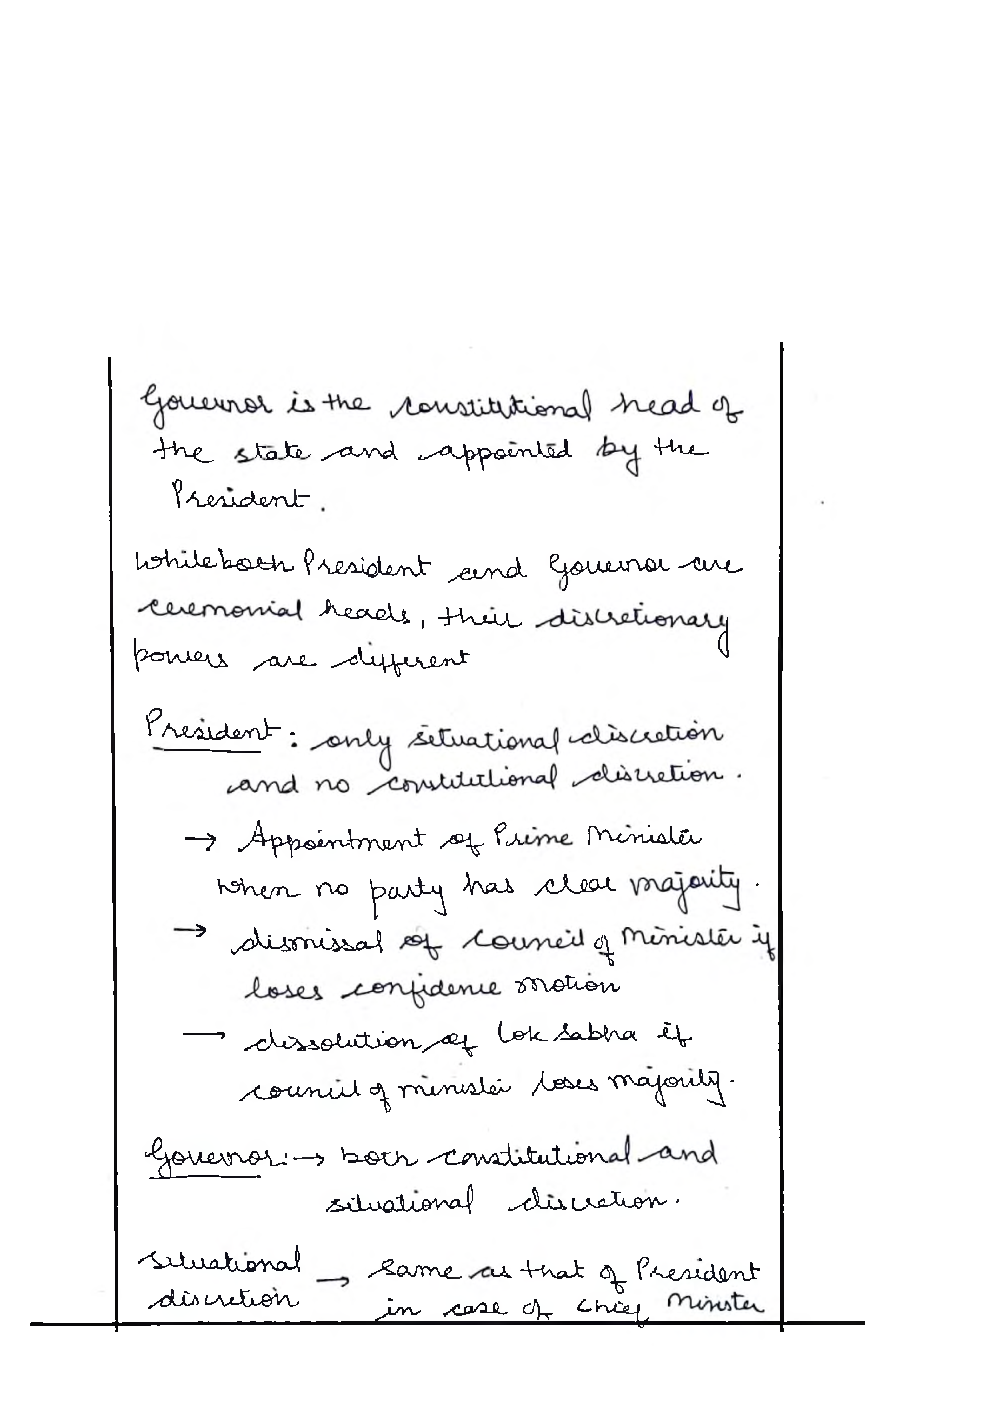 Governor is the constitutional head of
the state and appointed by the
President.
While both President and Governor are
ceremonial heads, their discretionary
powers are different
President: only situational discretion
and no constitutional discretion.
→ Appointment of Prime Minister
when no party has clear majority.
→ dismissal of council of minister if
loses confidence motion
→ dissolution of Lok Sabha if
council of minister loses majority.
Governor: → both constitutional and
situational discretion.
Situational → same as that of President
discretion in case of Chief Minister